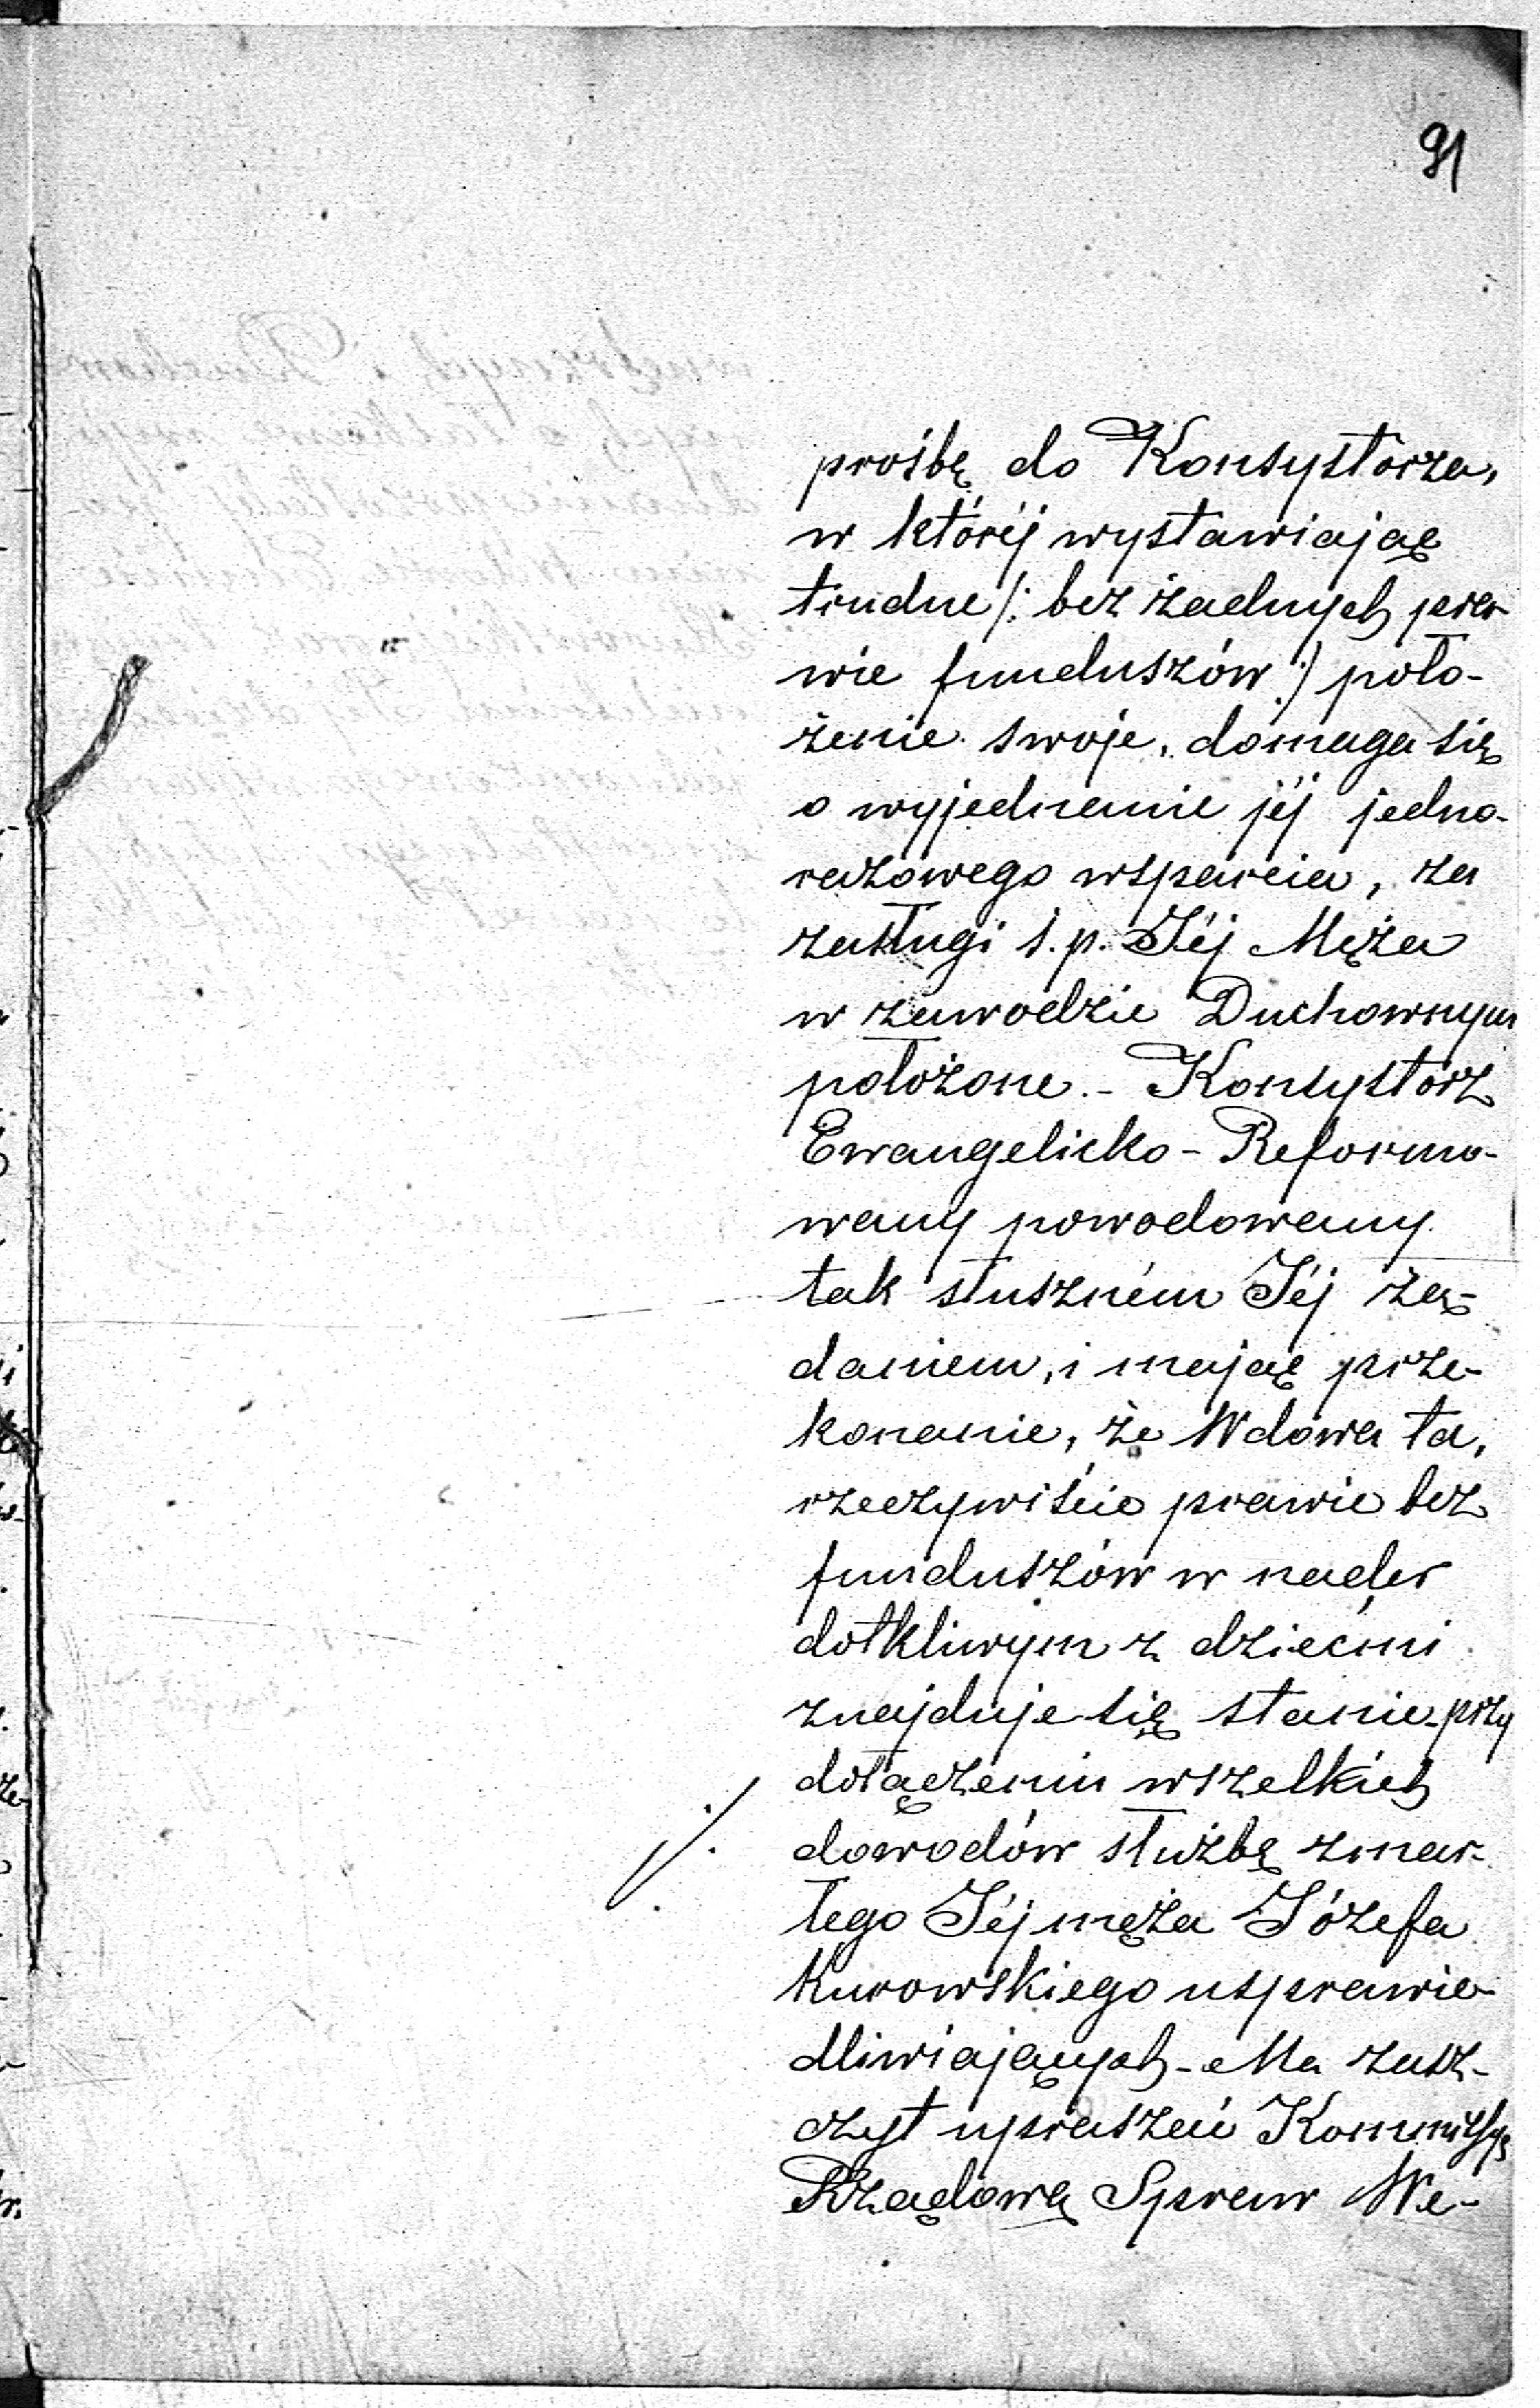 91
prośbę do Konsystorza,
w któréj wystawiając
trudne /: bez żadnych pra-
wie funduszów :/ poło-
żenie swoje, domaga się
o wyjednanie jéj jedno-
razowego wsparcia, za
zasługi ś.p. Jéj Męża
w zawodzie Duchownym
położone. - Konsystorz
Ewangelicko-Reformo-
wany powodowany
tak słuszném Jéj żą-
daniem, i mając prze-
konanie, że Wdowa ta,
rzeczywiście prawie bez
funduszów w nader
dotkliwym z dziećmi
znajduje się stanie - przy
dołączeniu wszelkich
dowodów służbę zmar-
łego Jéj męża Józefa
Kurowskiego usprawie-
dliwiających - Ma zasz-
czyt upraszać Kommissyę
Rządową Spraw We-